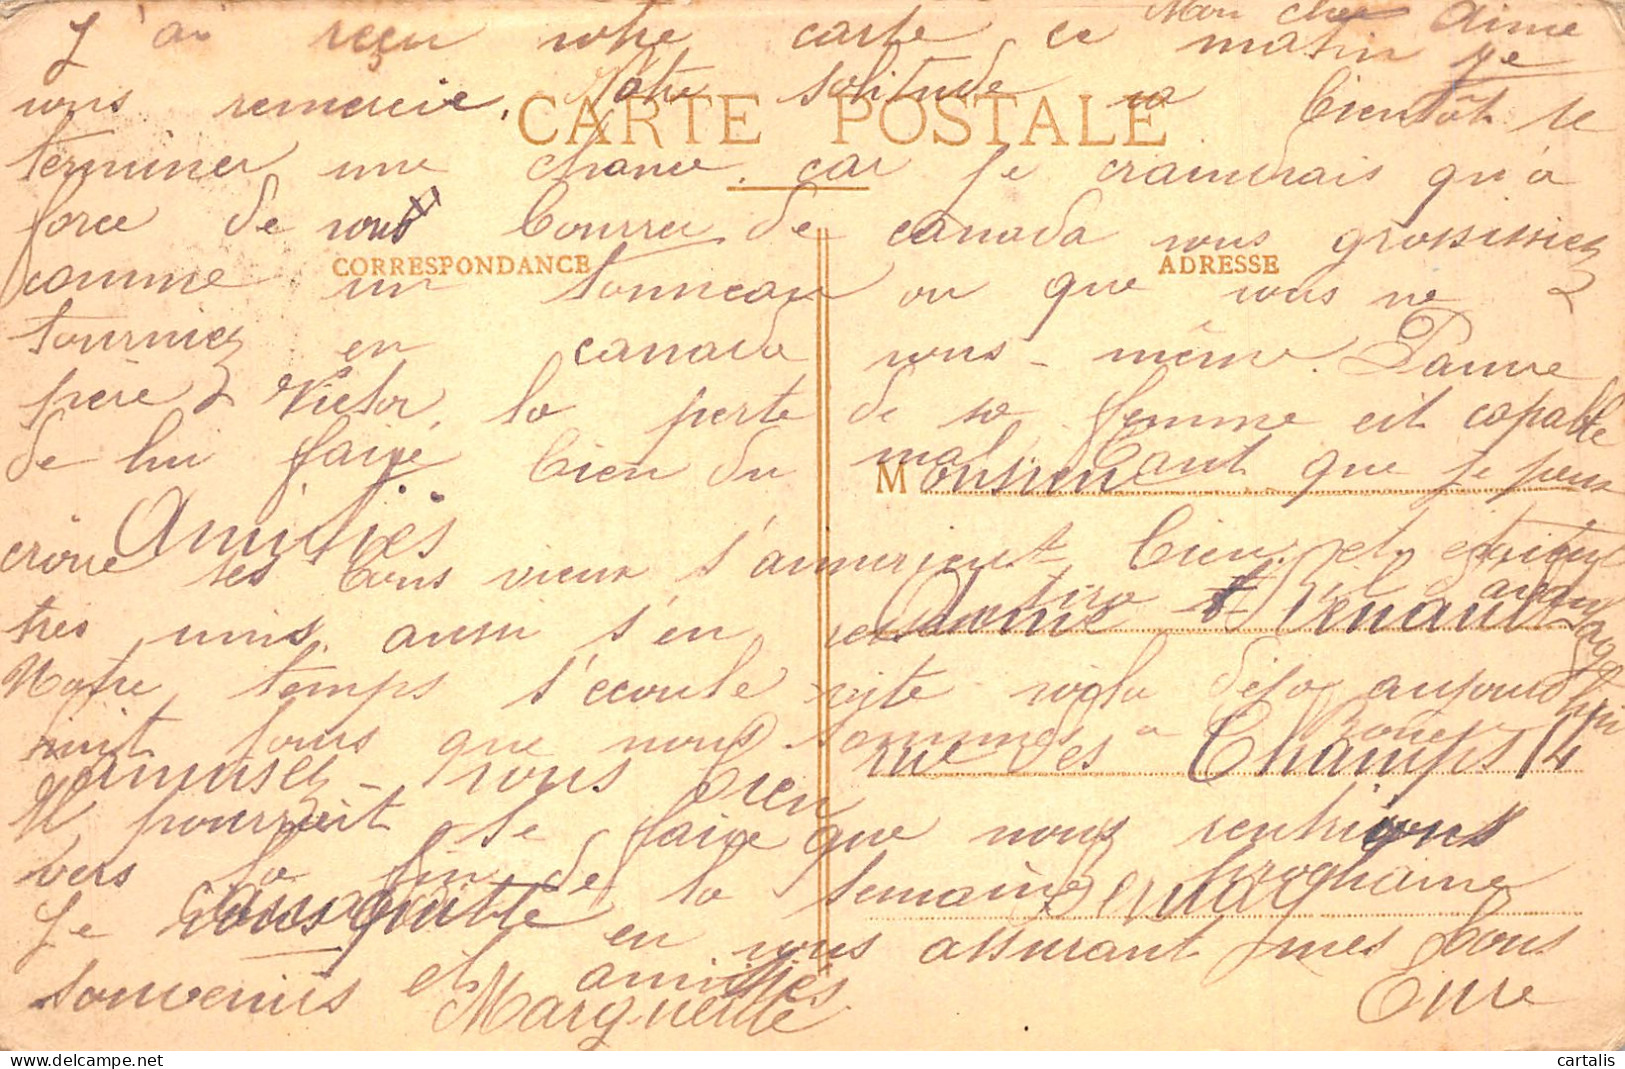 Mon cher Aimé
J'ai reçu votre carte ce matin je
vous remercie. Votre solitude va bientôt se
CARTE POSTALE
terminer une chance, car je craindrais qu'à
force de vous bourrer de canada vous grossissiez
CORRESPONDANCE
ADRESSE
comme un tonneau ou que vous ne
tourniez en canada vous-même. Pauvre
père Victor, la perte de sa femme est capable
de lui faire bien du mal. Tant que je peux
M onsieur
Amitiés
croire ses bons vieux s'aimaient bien et étaient
très unis, aussi s'en il davantage
Aimé Renault
Notre temps s'écoule vite voilà déjà aujourd'hui
huit jours que nous sommes à
rue des Champs 14
amusez-vous bien
Il pourrait se faire que nous rentrions
vers la fin de la semaine prochaine
Bernay
Je vous quitte en vous assurant mes bons
souvenirs et amitiés
Marguerite
Eure
cartalis